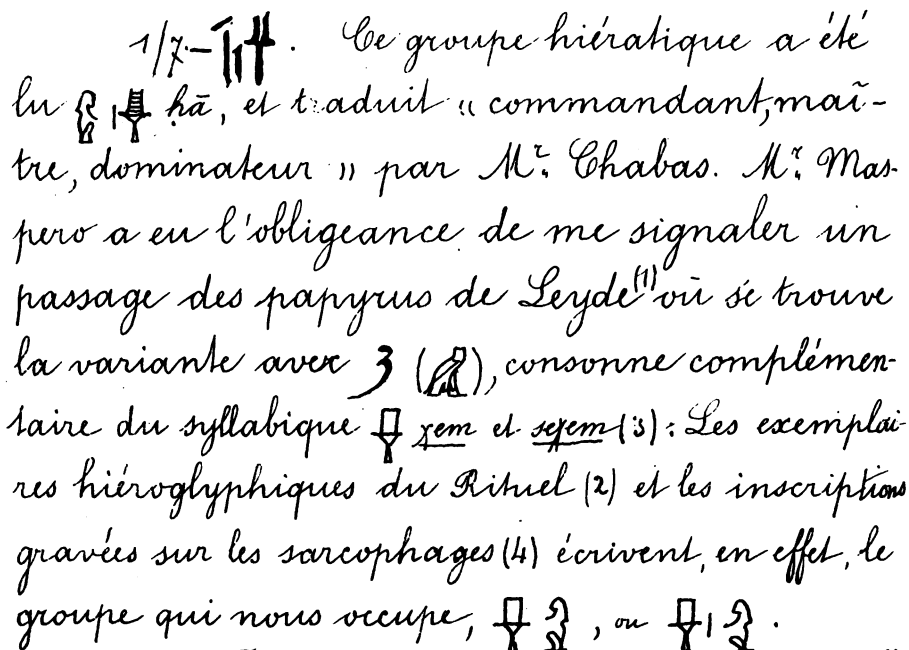 1/7.— . Ce groupe hiératique a été
lu ḥā, et traduit « commandant, maî-
tre, dominateur » par Mr. Chabas. Mr. Mas-
pero a eu l'obligeance de me signaler un
passage des papyrus de Leyde (1) où se trouve
la variante avec ( ), consonne complémen-
taire du syllabique χem et seχem (3): Les exemplai-
res hiéroglyphiques du Rituel (2) et les inscriptions
gravées sur les sarcophages (4) écrivent, en effet, le
groupe qui nous occupe, , ou .